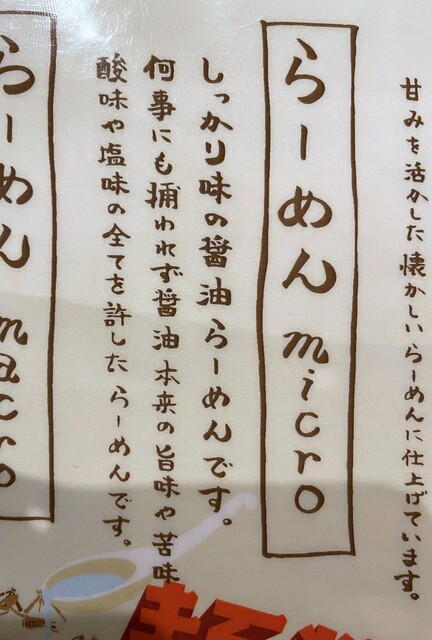 甘みを活かした懐かしいらーめんに仕上げています。
らーめん micro
しっかり味の醤油らーめんです。
何事にも捕われず醤油本来の旨味や苦味
酸味や塩味の全てを許したらーめんです。
らーめん macro